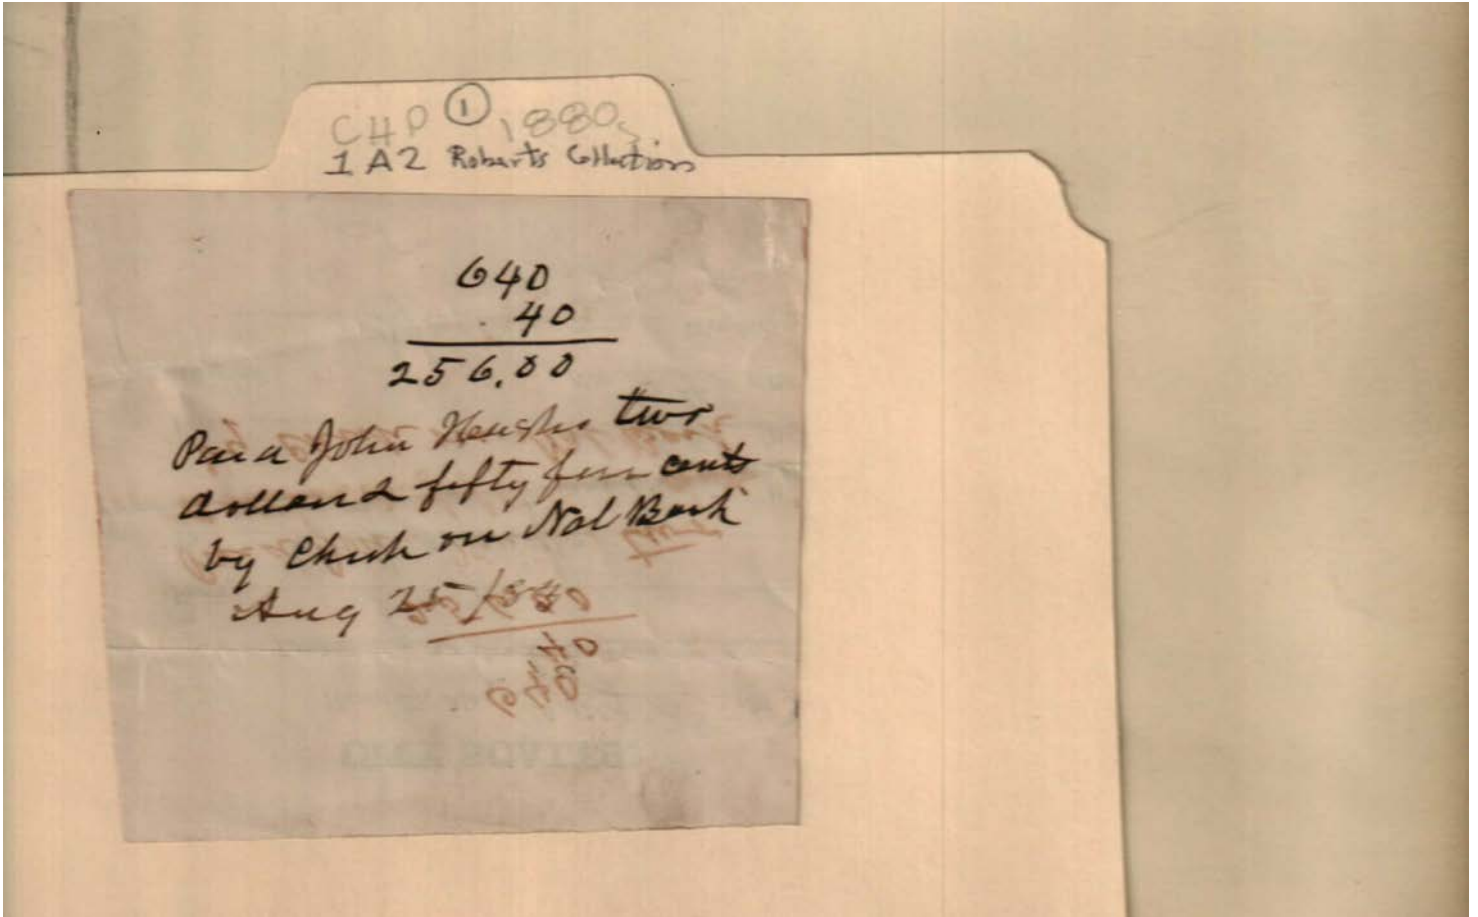 CHP ① 1880s
1A2 Roberts Collection
640
40
256.00
Paid John Hughs two
dollars & fifty four cents
by Check on Nat Bank
Aug 25